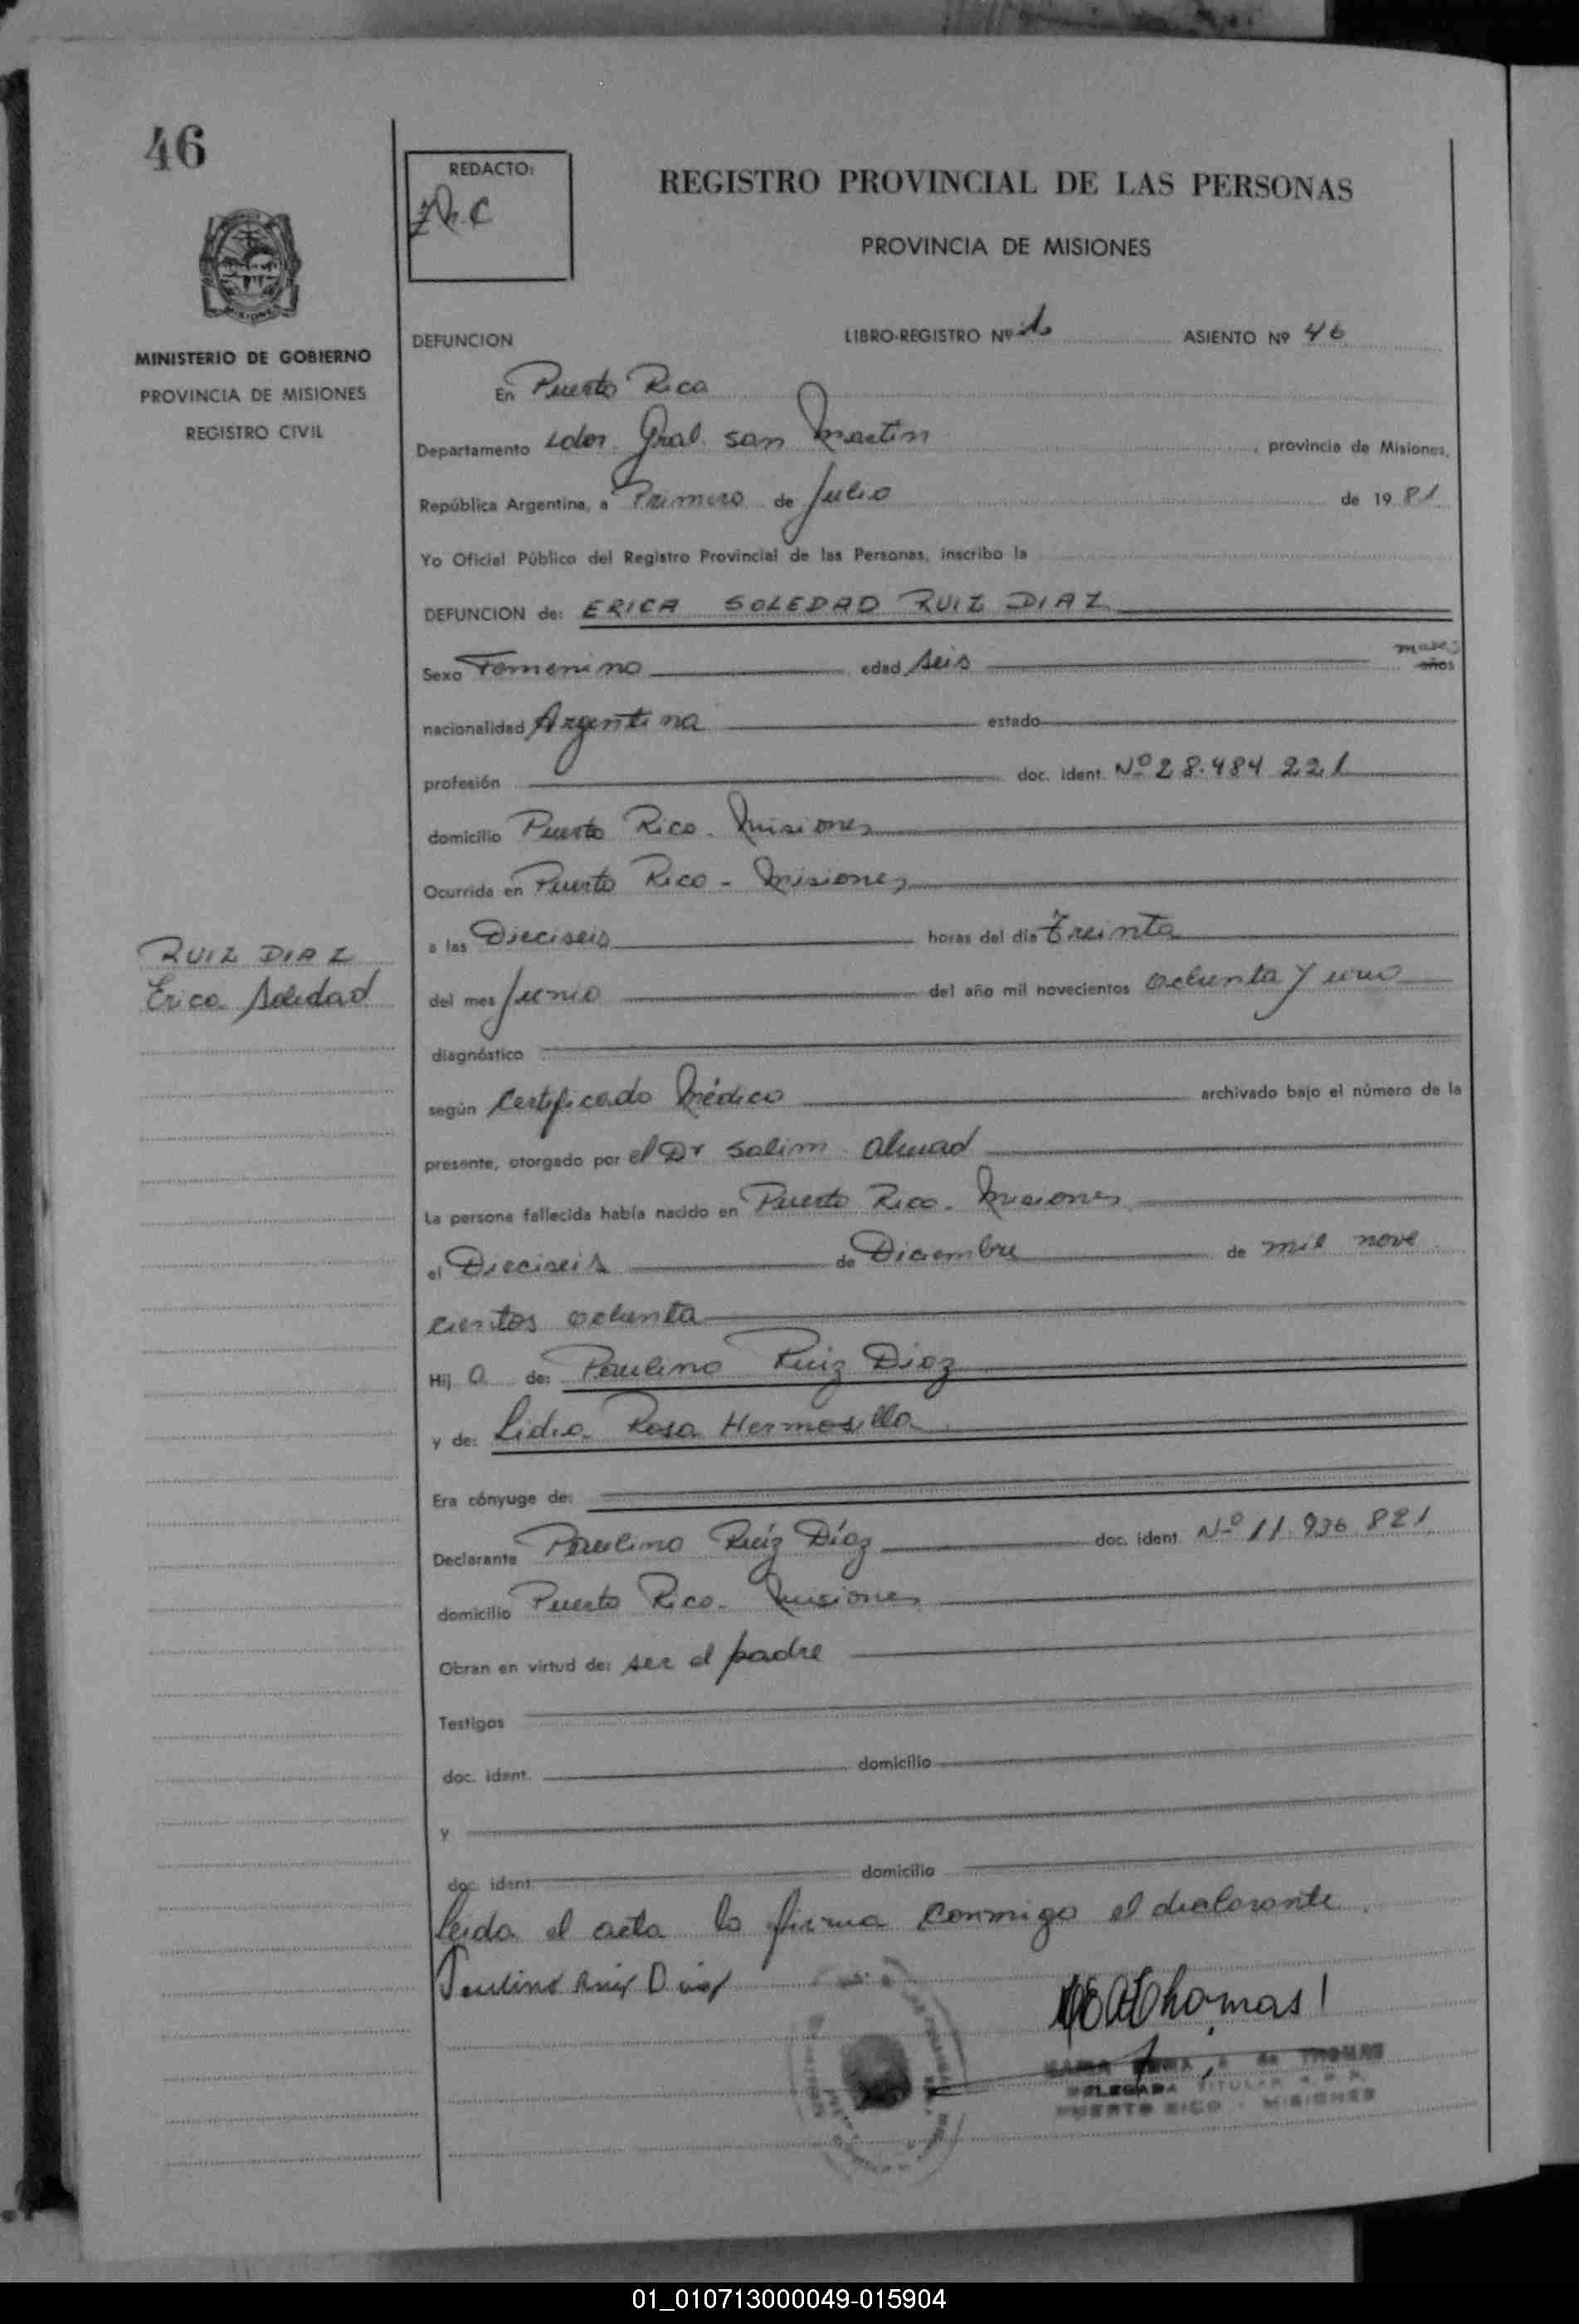 46
REDACTO:
REGISTRO PROVINCIAL DE LAS PERSONAS
PROVINCIA DE MISIONES
MISIONES
MINISTERIO DE GOBIERNO
PROVINCIA DE MISIONES
REGISTRO CIVIL
DEFUNCION LIBRO-REGISTRO Nº 1º ASIENTO Nº 46
En Puerto Rico
Departamento Ldor. Gral. San Martin, provincia de Misiones,
República Argentina, a Primero de Julio de 1981
Yo Oficial Público del Registro Provincial de las Personas, inscribo la
DEFUNCION de: ERICA SOLEDAD RUIZ DIAZ
Sexo Femenino edad seis meses años
nacionalidad Argentina estado
profesión doc. ident. Nº 28.484 221
domicilio Puerto Rico - Misiones
Ocurrida en Puerto Rico - Misiones
a las Dieciseis horas del día treinta
RUIZ DIAZ
Erica Soledad
del mes Junio del año mil novecientos ochenta y uno
diagnóstico
según Certificado Médico archivado bajo el número de la
presente, otorgado por el Dr Salim Ahuad
La persona fallecida había nacido en Puerto Rico - Misiones
el Dieciseis de Diciembre de mil nove
cientos ochenta
Hij a de: Paulino Ruiz Diaz
y de: Lidia Rosa Hermosilla
Era cónyuge de:
Declarante Paulino Ruíz Díaz doc. ident. Nº 11.936 821
domicilio Puerto Rico - Misiones
Obran en virtud de: ser el padre
Testigos
doc. ident. domicilio
y
doc. ident. domicilio
leída el acta la firma conmigo el declarante.
Paulino Ruiz Diaz
Thomas
de THOMAS
DELEGADA TITULAR R. P. P.
PUERTO RICO - MISIONES
01_010713000049-015904